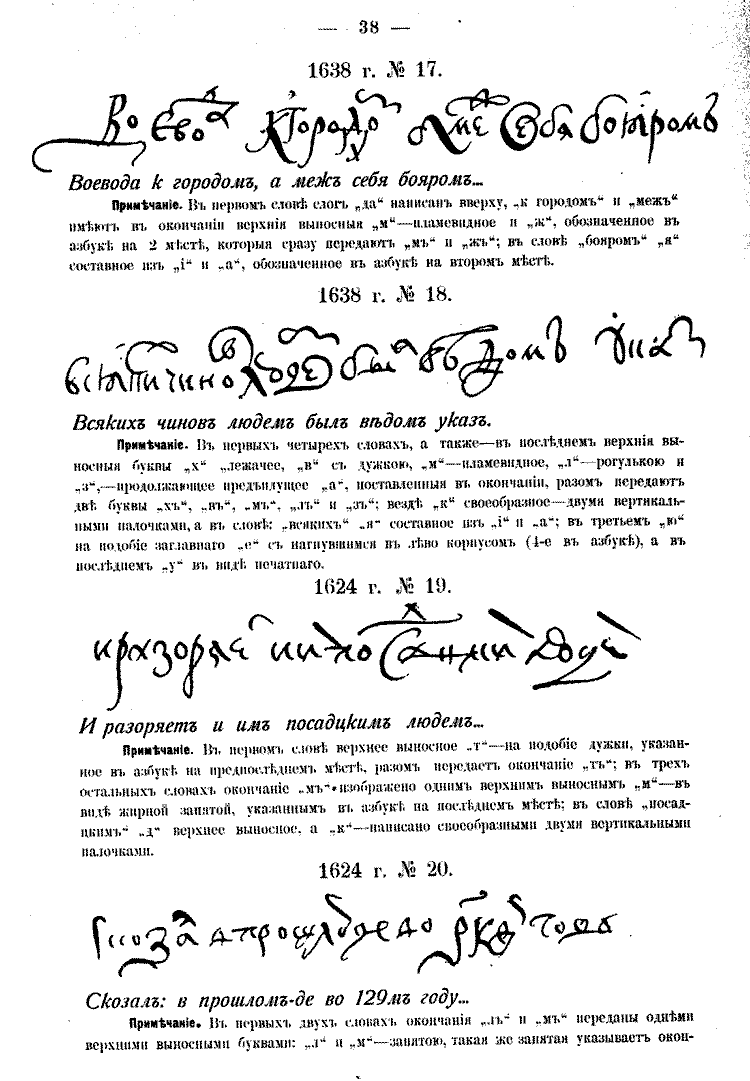 — 38 —
1638 г. № 17.
Воевода к городомъ, а межъ себя бояромъ...
Примѣчаніе. Въ первомъ словѣ слогъ „да“ написанъ вверху, „к городомъ“ и „межъ“
имѣютъ въ окончаніи верхнія выносныя „м“—пламевидное и „ж“, обозначенное въ
азбукѣ на 2 мѣстѣ, которыя сразу передаютъ „мъ“ и „жъ“; въ словѣ „бояромъ“ „я“
составное изъ „і“ и „а“, обозначенное въ азбукѣ на второмъ мѣстѣ.
1638 г. № 18.
Всякихъ чиновъ людемъ былъ вѣдомъ указ.
Примѣчаніе. Въ первыхъ четырехъ словахъ, а также—въ послѣднемъ верхнія вы-
носныя буквы „х“ лежачее, „в“ съ дужкою, „м“—пламевидное, „л“—рогулькою и
„з“,—продолжающее предъидущее „а“, поставленныя въ окончаніи, разомъ передаютъ
двѣ буквы „хъ“, „въ“, „мъ“, „лъ“ и „зъ“; вездѣ „к“ своеобразное—двумя вертикаль-
ными палочками, а въ словѣ: „всякихъ“ „я“ составное изъ „і“ и „а“; въ третьемъ „ю“
на подобіе заглавнаго „е“ съ нагнувшимся въ лѣво корпусомъ (4-е въ азбукѣ), а въ
послѣднемъ „у“ въ видѣ печатнаго.
1624 г. № 19.
И разоряетъ и имъ посадцкимъ людемъ...
Примѣчаніе. Въ первомъ словѣ верхнее выносное „т“—на подобіе дужки, указан-
ное въ азбукѣ на предпослѣднемъ мѣстѣ, разомъ передаетъ окончаніе „тъ“; въ трехъ
остальныхъ словахъ окончаніе „мъ“ изображено однимъ верхнимъ выноснымъ „м“—въ
видѣ жирной запятой, указаннымъ въ азбукѣ на послѣднемъ мѣстѣ; въ словѣ „посад-
цкимъ“ „д“ верхнее выносное, а „к“—написано своеобразными двумя вертикальными
палочками.
1624 г. № 20.
Скозалъ: в прошломъ-де во 129мъ году...
Примѣчаніе. Въ первыхъ двухъ словахъ окончанія „лъ“ и „мъ“ переданы однѣми
верхними выносными буквами: „л“ и „м“—запятою, такая же запятая указываетъ окон-